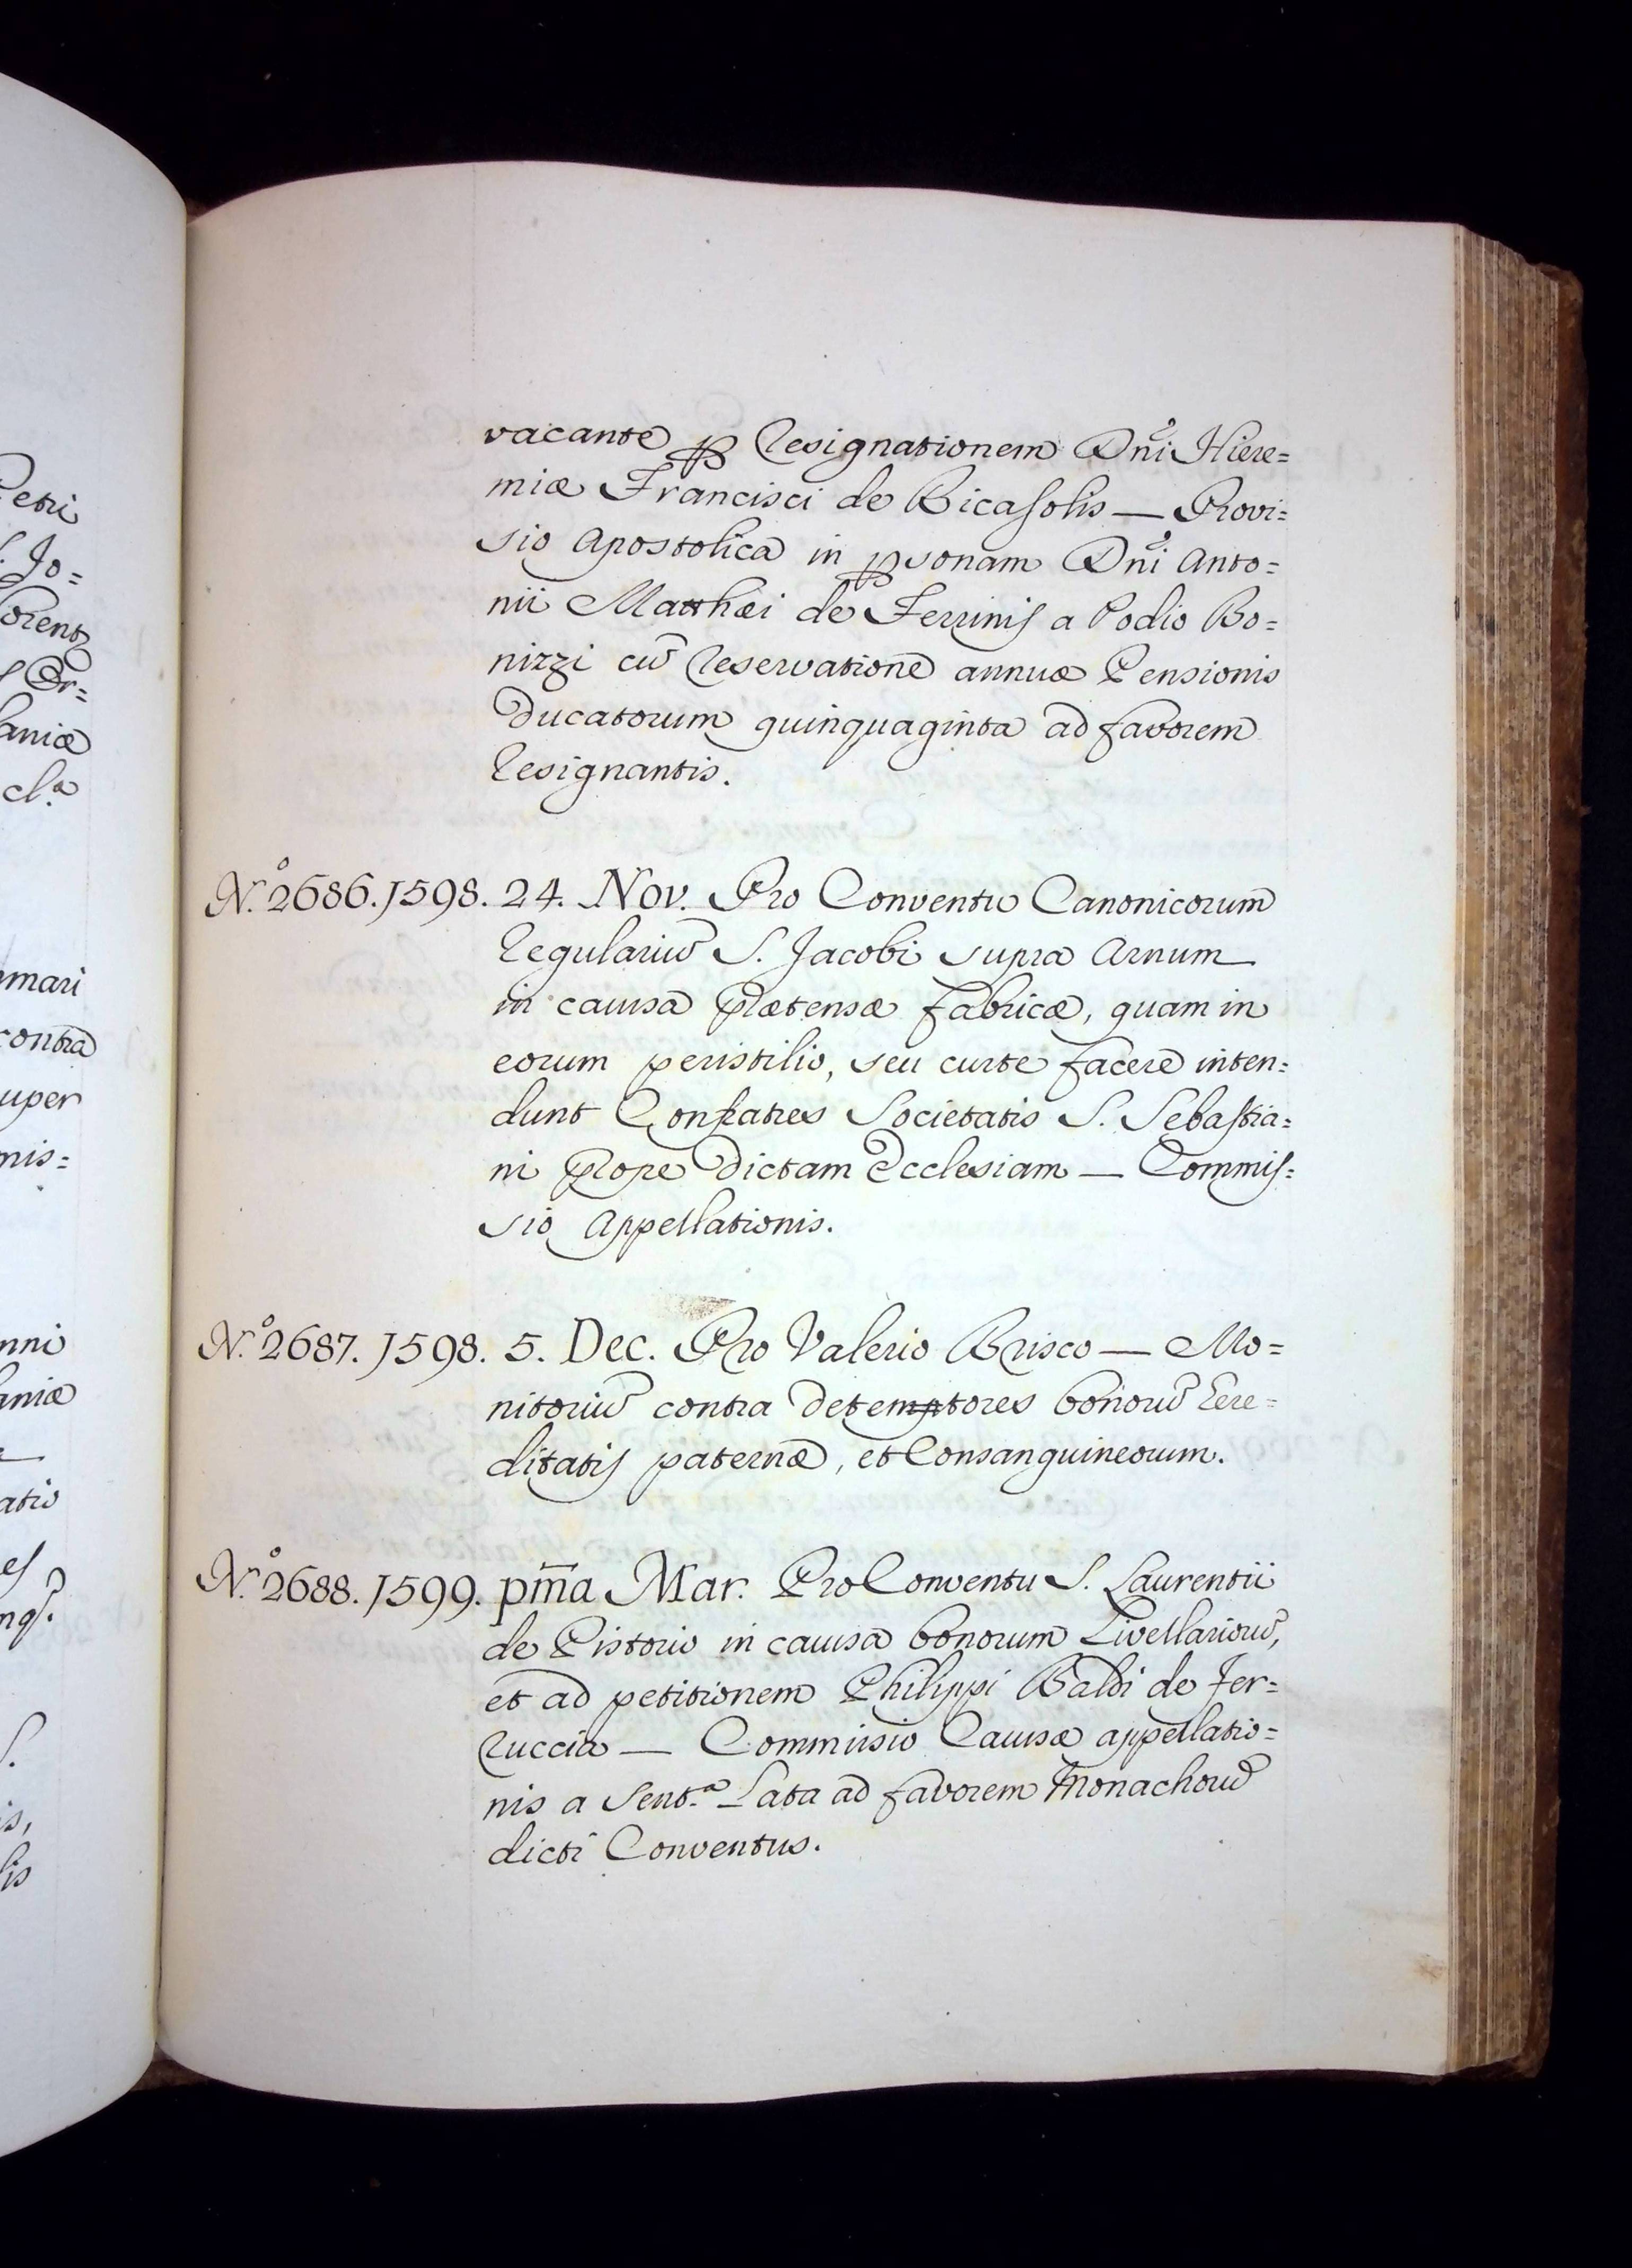 vacante ꝑ Resignationem Dñi Hiere=
miæ Francisci de Ricasolis — Provi=
sio Apostolica in ꝑsonam Dñi Anto=
nii Matthæi de Ferrinis a Podio Bo=
nizzi cũ Reservatione annuæ Pensionis
Ducatorum quinquaginta ad favorem
Resignantis.
N.º 2686. 1598. 24. Nov. Pro Conventu Canonicorum
Regulariũ S. Jacobi supra Arnum
in causa prætensæ fabricæ, quam in
eorum peristilio, seu curte facere inten=
dunt Confratres Societatis S. Sebastia=
ni prope dictam Ecclesiam — Commis=
sio Appellationis.
N.º 2687. 1598. 5. Dec. Pro Valerio Brisco — Mo=
nitoriũ contra detemptores bonorũ Ere=
ditatis paternæ, et Consanguineorum.
N.º 2688. 1599. pm̃a Mar. Pro Conventu S. Laurentii
de Pistorio in causa bonorum Livellariorũ,
et ad petitionem Philippi Baldi de Fer=
ruccia — Commissio Causæ appellatio=
nis a Sent.ª Lata ad favorem Monachorũ
dicti Conventus.
etri
S. Jo=
orent
aniæ
cl.ª
mari
contra
uper
mis=
nni
aniæ
atio
es
S.
is,
lis